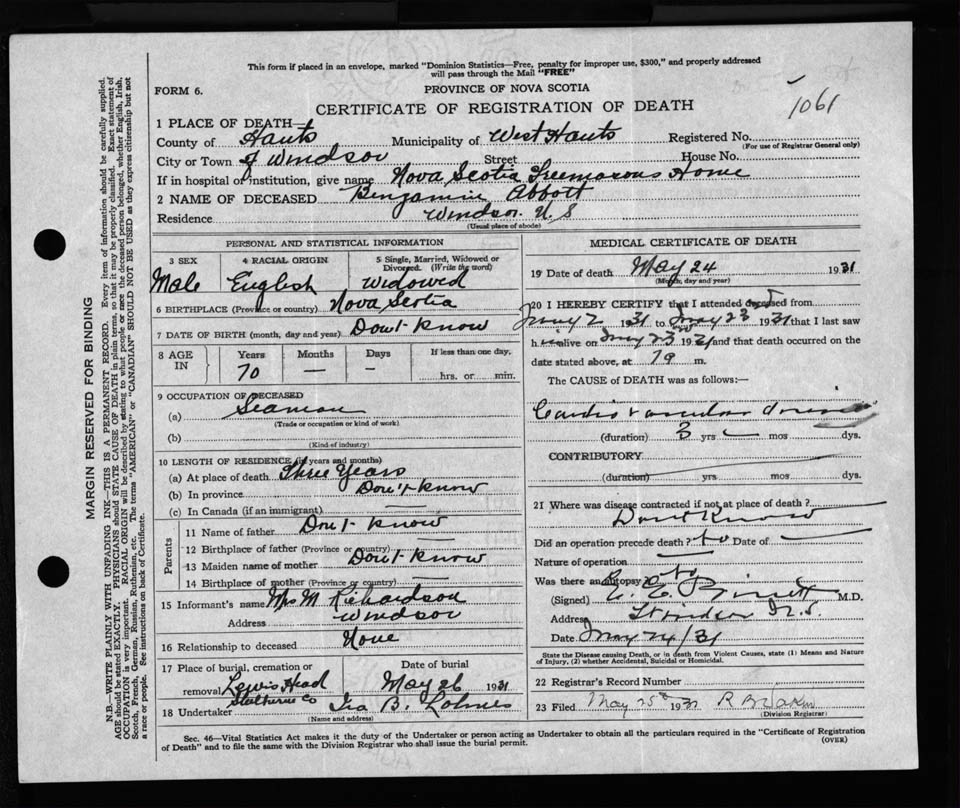 This form if placed in an envelope, marked "Dominion Statistics—Free, penalty for improper use, $300," and properly addressed
will pass through the Mail "FREE"
FORM 6.
PROVINCE OF NOVA SCOTIA
1061
CERTIFICATE OF REGISTRATION OF DEATH
1 PLACE OF DEATH—
County of Hants Municipality of West Hants Registered No.
(For use of Registrar General only)
City or Town of Windsor Street House No.
If in hospital or institution, give name Nova Scotia Freemasons Home
2 NAME OF DECEASED Benjamin Abbott
Residence Windsor N. S
(Usual place of abode)
PERSONAL AND STATISTICAL INFORMATION
3 SEX 4 RACIAL ORIGIN 5 Single, Married, Widowed or
Divorced. (Write the word)
Male English Widowed
6 BIRTHPLACE (Province or country) Nova Scotia
7 DATE OF BIRTH (month, day and year) Don't Know
8 AGE IN Years Months Days If less than one day.
70 — — hrs. or min.
9 OCCUPATION OF DECEASED
(a) Seaman
(Trade or occupation or kind of work)
(b)
(Kind of industry)
10 LENGTH OF RESIDENCE (in years and months)
(a) At place of death Three Years
(b) In province Don't Know
(c) In Canada (if an immigrant) —
Parents
11 Name of father Don't Know
12 Birthplace of father (Province or country) —
13 Maiden name of mother Don't Know
14 Birthplace of mother (Province or country) —
15 Informant's name Mrs M Richardson
Address Windsor
16 Relationship to deceased None
17 Place of burial, cremation or Date of burial
removal Head May 26 1931
Shelburne Co
18 Undertaker Ira B.
(Name and address)
MEDICAL CERTIFICATE OF DEATH
19 Date of death May 24 1931
(Month, day and year)
20 I HEREBY CERTIFY that I attended deceased from
May 2 1931 to May 23 1931 that I last saw
h alive on May 23 1931 and that death occurred on the
date stated above, at m.
The CAUSE of DEATH was as follows:—
Cardio vascular disease
(duration) 3 yrs — mos dys.
CONTRIBUTORY
(duration) yrs. mos. dys.
21 Where was disease contracted if not at place of death?
Don't Know
Did an operation precede death? Date of —
Nature of operation —
Was there an autopsy?
(Signed) M.D.
Address Windsor N.S.
Date May 24/31
State the Disease causing Death, or in death from Violent Causes, state (1) Means and Nature
of Injury, (2) whether Accidental, Suicidal or Homicidal.
22 Registrar's Record Number
23 Filed May 25th 1931
(Division Registrar)
Sec. 46—Vital Statistics Act makes it the duty of the Undertaker or person acting as Undertaker to obtain all the particulars required in the "Certificate of Registration
of Death" and to file the same with the Division Registrar who shall issue the burial permit.
(OVER)
MARGIN RESERVED FOR BINDING
N.B.—WRITE PLAINLY WITH UNFADING INK—THIS IS A PERMANENT RECORD. Every item of information should be carefully supplied.
AGE should be stated EXACTLY. PHYSICIANS should STATE CAUSE OF DEATH in plain terms, so that it may be properly classified. Exact statement of
OCCUPATION is very important. RACIAL ORIGIN will be described by stating to what people or race the deceased person belonged, whether English, Irish,
Scotch, French, German, Russian, Ruthenian, etc. The terms "AMERICAN" or "CANADIAN" SHOULD NOT BE USED as they express citizenship but not
a race or people. See instructions on back of Certificate.